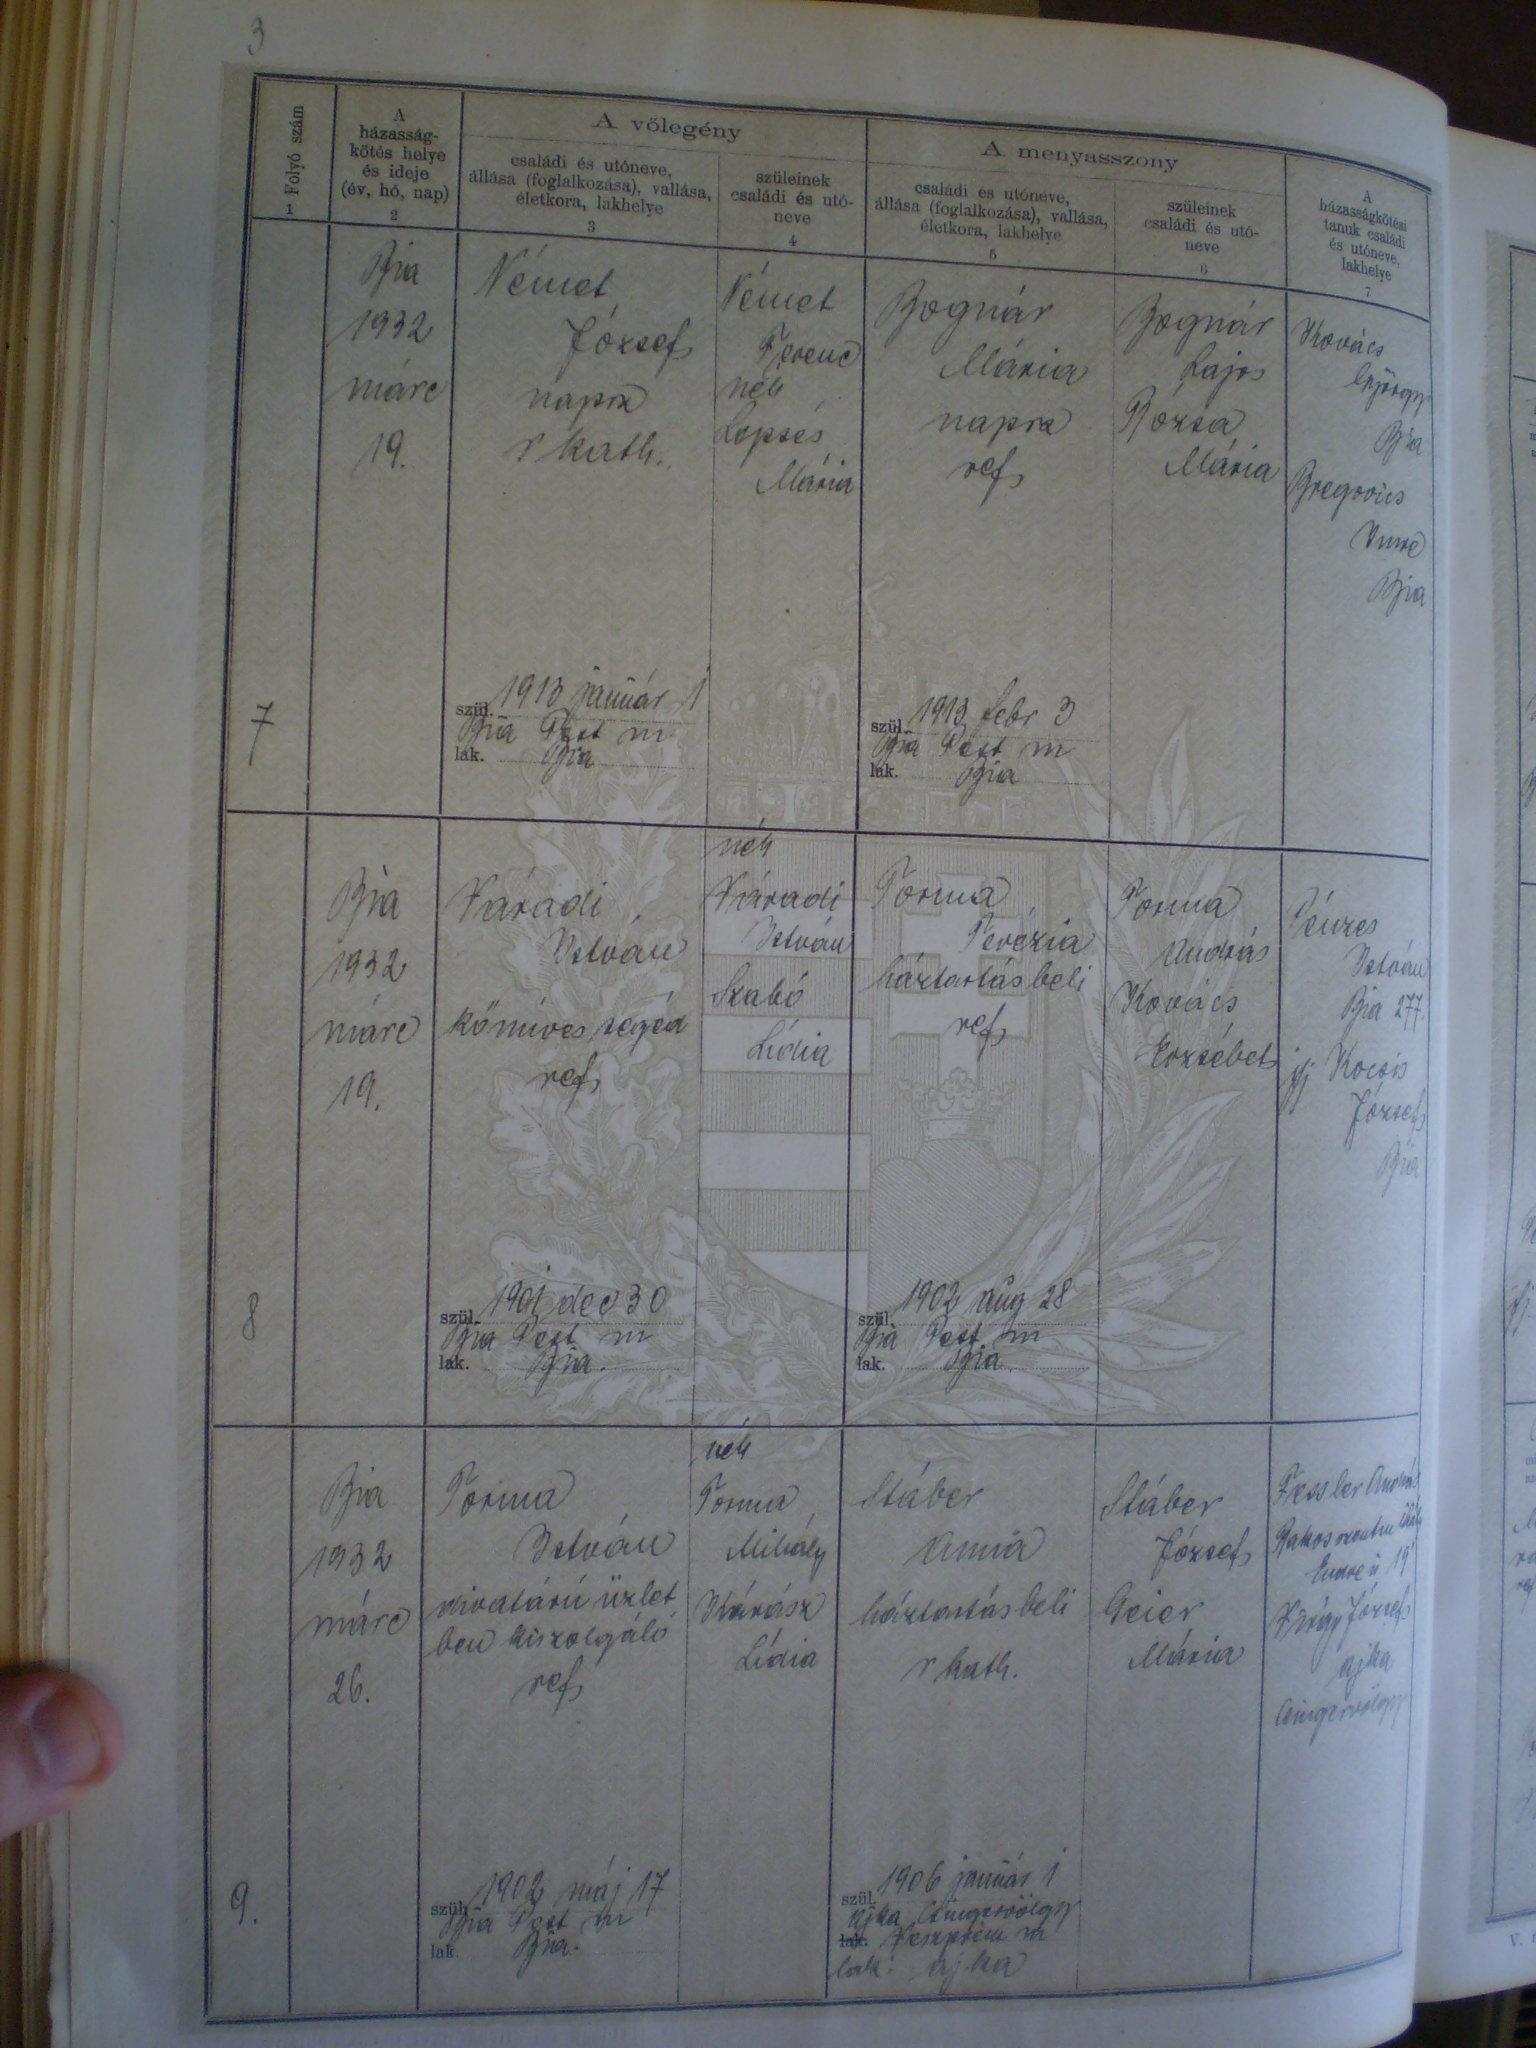 3
Folyó szám
1
A
házasság-
kötés helye
és ideje
(év, hó, nap)
2
A vőlegény
családi és utóneve,
állása (foglalkozása), vallása,
életkora, lakhelye
3
szüleinek
családi és utó-
neve
4
A menyasszony
családi és utóneve,
állása (foglalkozása), vallása,
életkora, lakhelye
5
szüleinek
családi és utó-
neve
6
A
házasságkötési
tanuk családi
és utóneve,
lakhelye
7
7
Bia
1932
márc
19.
Német
József
napsz
r kath.
szül. 1913 január 1
Bia Pest m
lak. Bia
Német
Ferenc
néh
Lepsés
Mária
Bognár
Mária
napsz
ref
szül. 1913 febr 3
Bia Pest m
lak. Bia
Bognár
Lajos
Rózsa
Mária
Kovács
György
Bia
Bregovics
Imre
Bia
8
Bia
1932
márc
19.
Váradi
István
kőműves segéd
ref
szül. 1901 dec 30
Bia Pest m
lak. Bia.
néh
Váradi
István
Szabó
Lídia
Torma
Terézia
háztartásbeli
ref
szül. 1902 aug 28
Bia Pest m
lak. Bia.
Torma
András
Kovács
Erzsébet
Pénzes
István
Bia 277.
ifj Kocsis
József
Bia
9.
Bia
1932
márc
26.
Torma
István
divatárú üzlet
ben kiszolgáló
ref
szül. 1902 máj 17
Bia Pest m
lak. Bia.
néh
Torma
Mihály
Kárász
Lídia
Stáber
Anna
háztartásbeli
r kath.
szül. 1906 január 1
Ajka Csingervölgy
lak. Veszprém m
lak. Ajka
Stáber
József
Geier
Mária
Fessler András
Rákosszentmihály
19
Virág József
Ajka
Csingervölgy